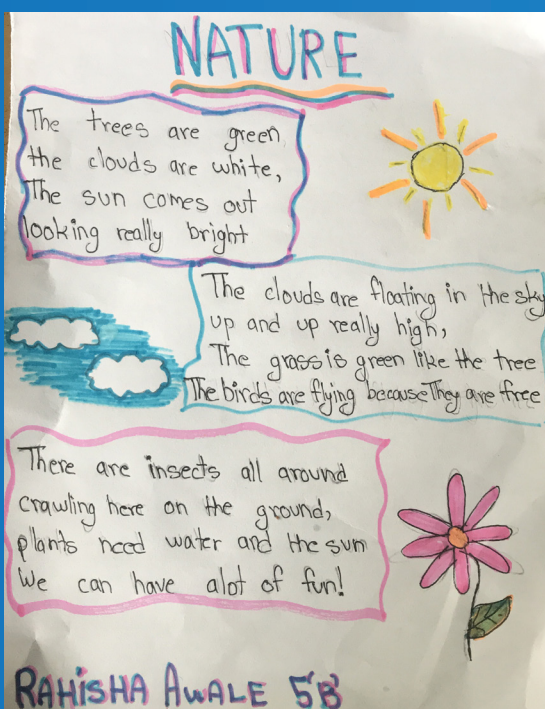 NATURE
The trees are green
the clouds are white,
The sun comes out
looking really bright
The clouds are floating in the sky
up and up really high,
The grass is green like the tree
The birds are flying because They are free
There are insects all around
crawling here on the ground,
plants need water and the sun
We can have alot of fun!
RAHISHA AWALE 5'B'